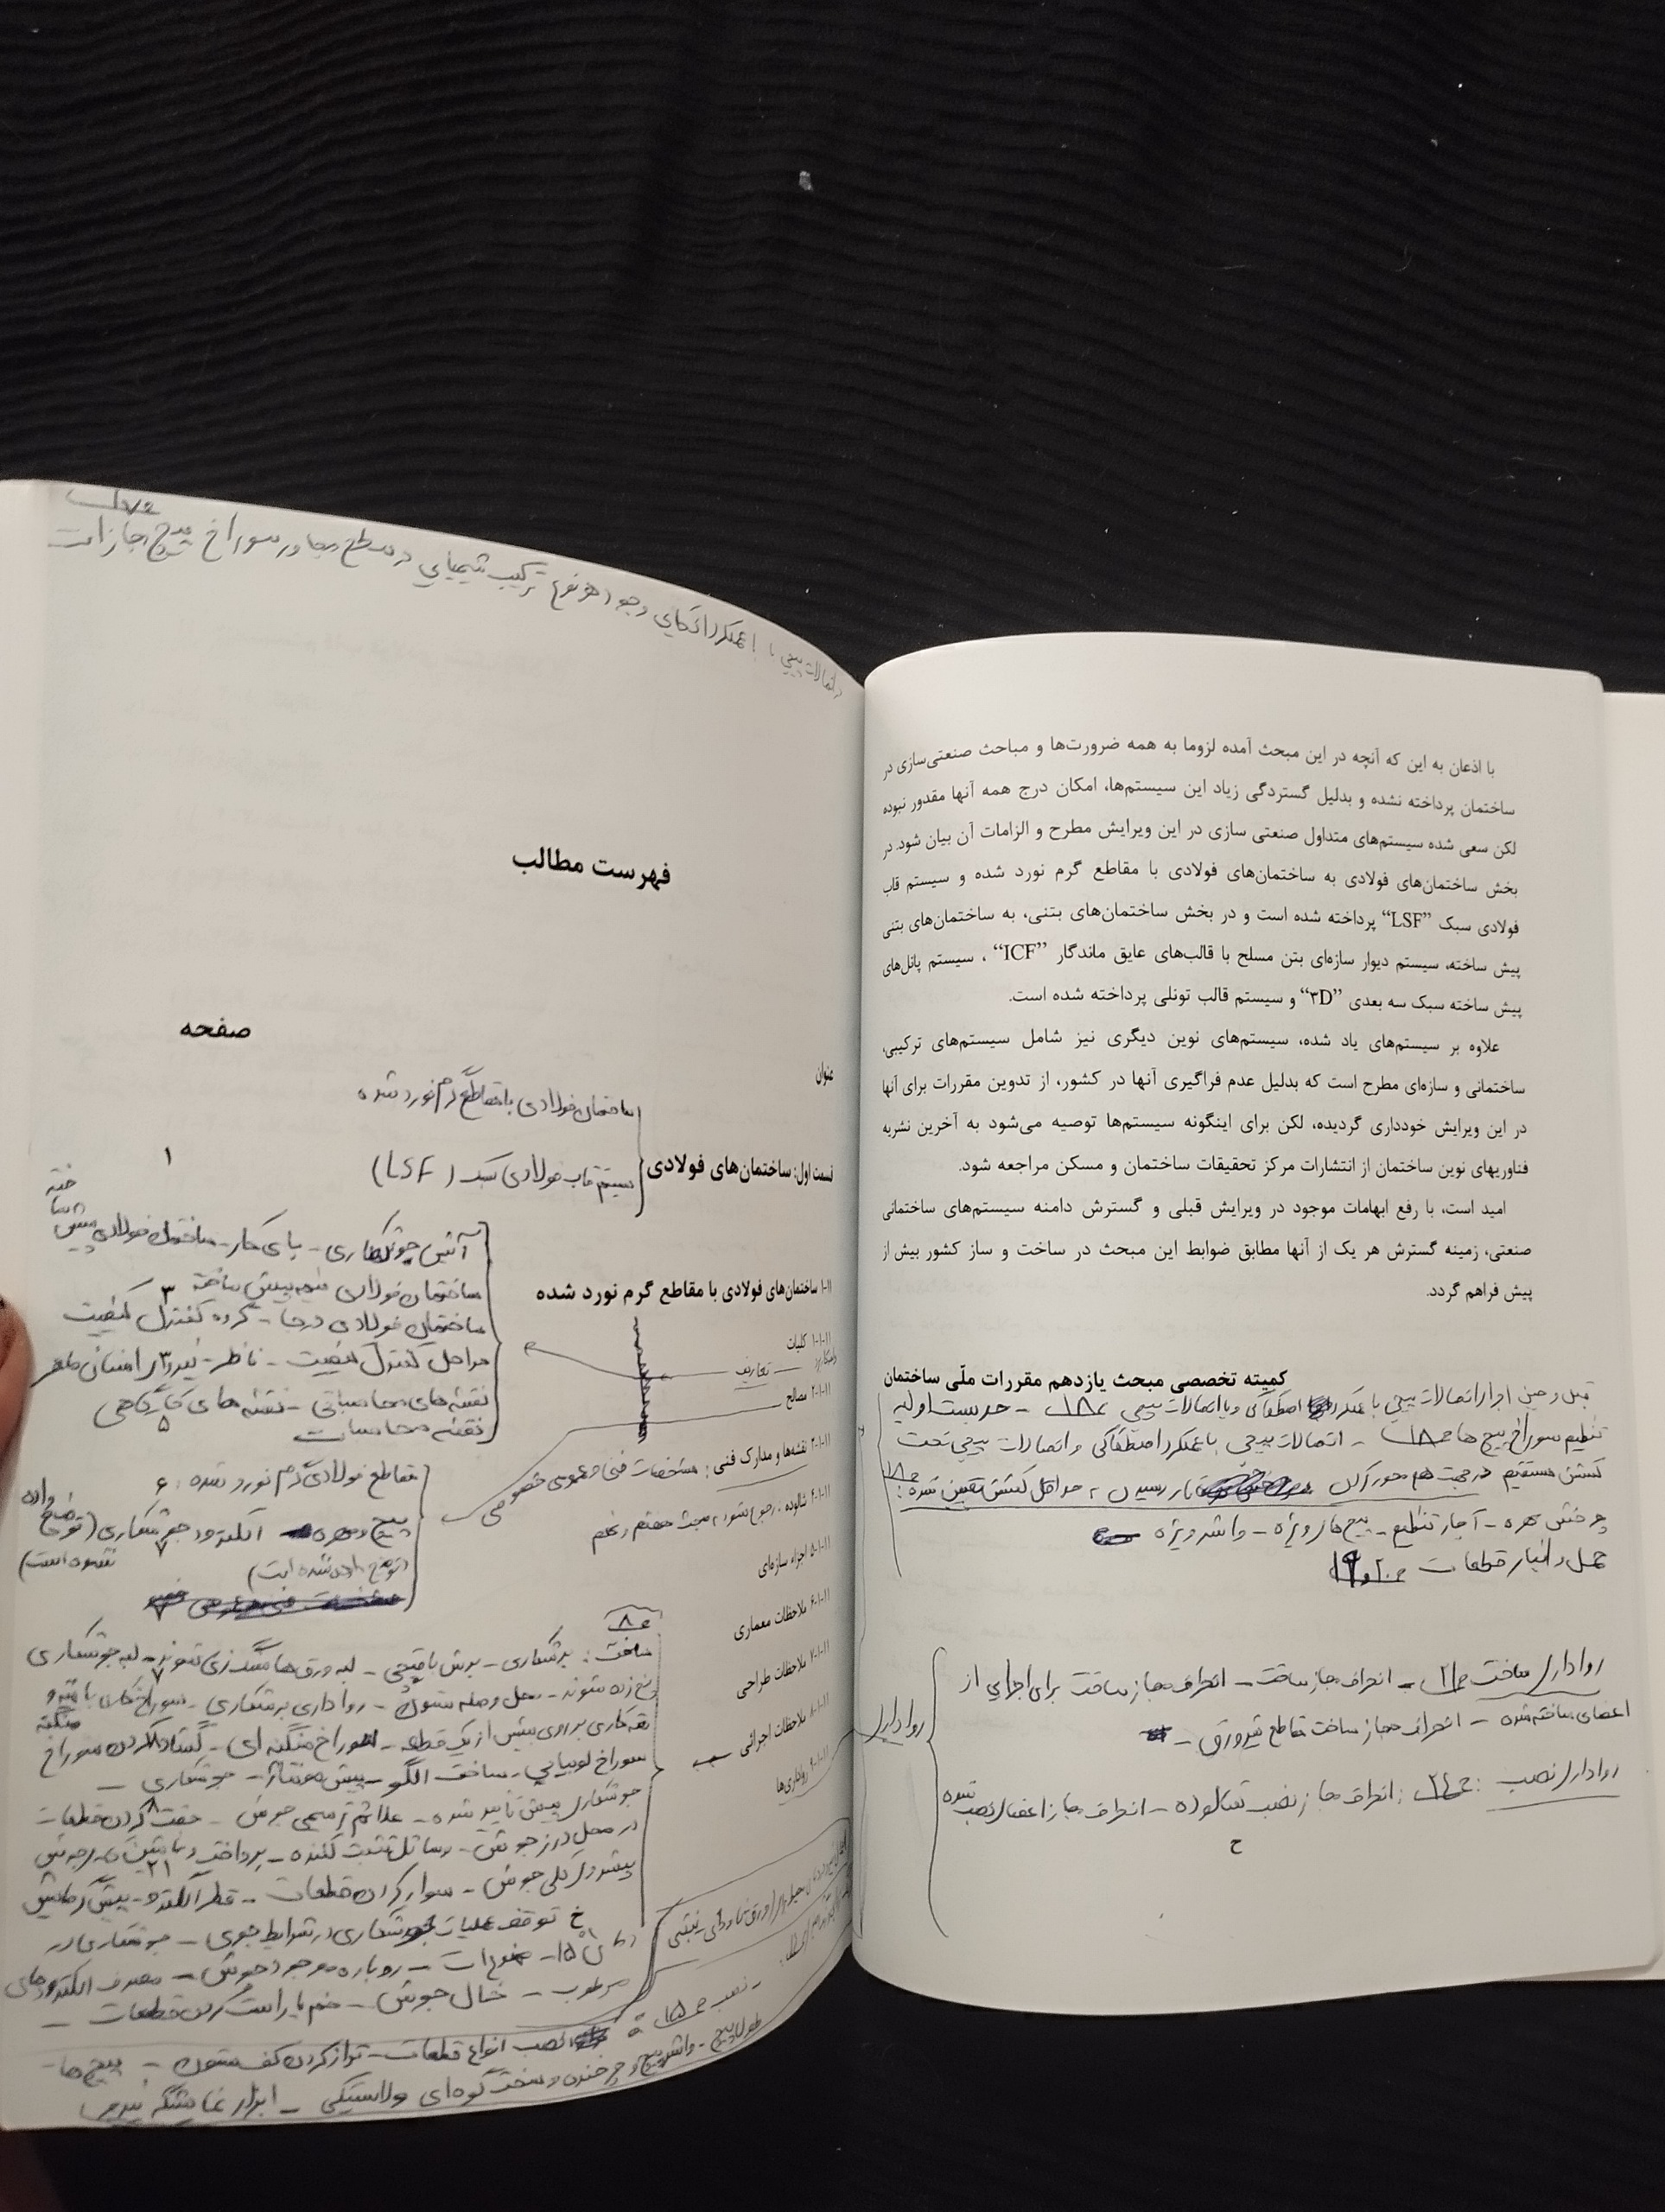 با اذعان به این که آنچه در این مبحث آمده لزوما به همه ضرورت‌ها و مباحث صنعتی‌سازی در
ساختمان پرداخته نشده و بدلیل گستردگی زیاد این سیستم‌ها، امکان درج همه آنها مقدور نبوده
لکن سعی شده سیستم‌های متداول صنعتی سازی در این ویرایش مطرح و الزامات آن بیان شود. در
بخش ساختمان‌های فولادی به ساختمان‌های فولادی با مقاطع گرم نورد شده و سیستم قاب
فولادی سبک "LSF" پرداخته شده است و در بخش ساختمان‌های بتنی، به ساختمان‌های بتنی
پیش ساخته، سیستم دیوار سازه‌ای بتن مسلح با قالب‌های عایق ماندگار "ICF" ، سیستم پانل‌های
پیش ساخته سبک سه بعدی "۳D" و سیستم قالب تونلی پرداخته شده است.
علاوه بر سیستم‌های یاد شده، سیستم‌های نوین دیگری نیز شامل سیستم‌های ترکیبی،
ساختمانی و سازه‌ای مطرح است که بدلیل عدم فراگیری آنها در کشور، از تدوین مقررات برای آنها
در این ویرایش خودداری گردیده، لکن برای اینگونه سیستم‌ها توصیه می‌شود به آخرین نشریه
فناوریهای نوین ساختمان از انتشارات مرکز تحقیقات ساختمان و مسکن مراجعه شود.
امید است، با رفع ابهامات موجود در ویرایش قبلی و گسترش دامنه سیستم‌های ساختمانی
صنعتی، زمینه گسترش هر یک از آنها مطابق ضوابط این مبحث در ساخت و ساز کشور بیش از
پیش فراهم گردد.
کمیته تخصصی مبحث یازدهم مقررات ملّی ساختمان
قبل و حین اجرا اتصالات پیچی با عملکرد اصطکاکی و یا اتصالات پیچی ص۱۸ - حدبست اولیه
تنظیم سوراخ پیچ ها ص۱۸ - اتصالات پیچی با عملکرد اصطکاکی و اتصالات پیچی تحت
کشش مستقیم در جهت هم محور کردن تا رسیدن به حداقل کشش تعیین شده ص۱۸
چرخش مهره - آچار تنظیم - پیچ های ویژه - واشر ویژه
حمل و انبار قطعات ص۲۰ و ۱۹
رواداری
رواداری ساخت ص۲۰ - انحراف مجاز ساخت - انحراف مجاز ساخت برای اجزای از
اعضای ساخته شده - انحراف مجاز ساخت مقاطع تیرورق -
رواداری نصب : ص۲۴ : انحراف مجاز نصب شالوده - انحراف مجاز اعضای نصب شده
ح
در اتصالات پیچی با عملکرد اتکایی وجود هر نوع ترکیب شیمیایی در سطح مجاور سوراخ پیچ مجاز است
فهرست مطالب
عنوان
صفحه
ساختمان فولادی با مقاطع گرم نورد شده
قسمت اول: ساختمان‌های فولادی
۱
سیستم قاب فولادی سبک (LSF)
آئین جوشکاری - پای کار - ساختمان فولادی پیش ساخته
۱-۱۱ ساختمان‌های فولادی با مقاطع گرم نورد شده
۳
ساختمان فولادی نیمه پیش ساخته
ساختمان فولادی درجا - گروه کنترل کیفیت
۱-۱-۱۱ کلیات
تعاریف
مراحل کنترل کیفیت - ناظر - نیروی انسانی ماهر
۳
۲-۱-۱۱ مصالح
نقشه های محاسباتی - نقشه های کارگاهی
۵
نقشه محاسبات
۳-۱-۱۱ نقشه‌ها و مدارک فنی : مشخصات فنی عمومی خصوصی
مقاطع فولادی گرم نورد شده :
۶
۴-۱-۱۱ شالوده : رجوع شود به مبحث هفتم و نهم
پیچ و مهره - الکترود جوشکاری (توضیح داده نشده است)
(توضیح داده نشده است)
۷
۵-۱-۱۱ اجزاء سازه‌ای
۷
۶-۱-۱۱ ملاحظات معماری
ص۸
ساخت : برشکاری - برش با قیچی - لبه ورق ها سنگ زنی شوند - لبه جوشکاری
۷
۷-۱-۱۱ ملاحظات طراحی
پخ زده شوند - محل وصله ستون - رواداری برشکاری - سوراخکاری با مته و منگنه
۸-۱-۱۱ ملاحظات اجرائی
مته کاری بر روی بیش از یک قطعه - سوراخ منگنه ای - گشاد کردن سوراخ
سوراخ لوبیایی - ساخت الگو - پیش مونتاژ - جوشکاری -
۸
۹-۱-۱۱ رواداری‌ها
جوشکاری پیش تایید شده - علائم ترسیمی جوش - جفت کردن قطعات
۲۱
در محل درز جوش - وسائل تثبیت کننده - پرداخت
پیشروی کلی جوش - سوار کردن قطعات - قطر الکترود - پیش گرمایش
توقف عملیات جوشکاری در شرایط جوی - جوشکاری در
مرطوب - خال جوش - خم یا راست کردن قطعات -
- نصب ص۱۵
نصب انواع قطعات - تراز کردن کف ستون - پیچ ها